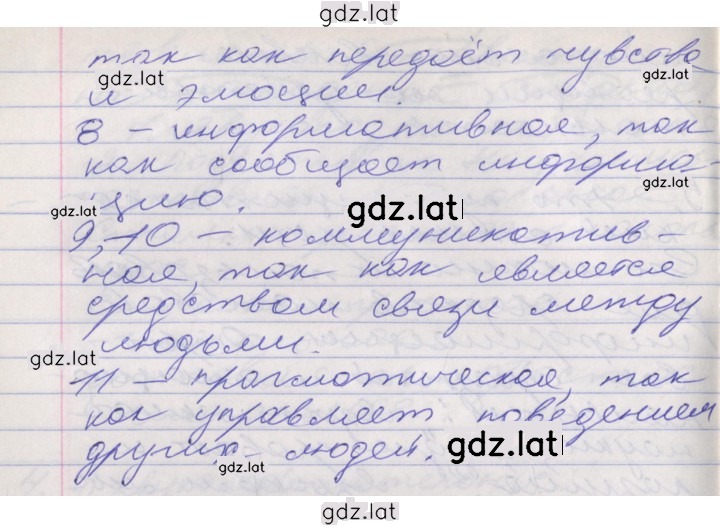 gdz.lat
так как передаёт чувства
gdz.lat gdz.lat
и эмоции.
8 – информативная, так
gdz.lat
как сообщает информа-
gdz.lat
цию.
gdz.lat gdz.lat
9,–10 – коммуникатив-
ная, так как является
средством связи между
людьми.
gdz.lat gdz.lat
11 – прагматическая, так
как управляет поведением
других людей.
gdz.lat gdz.lat
gdz.lat